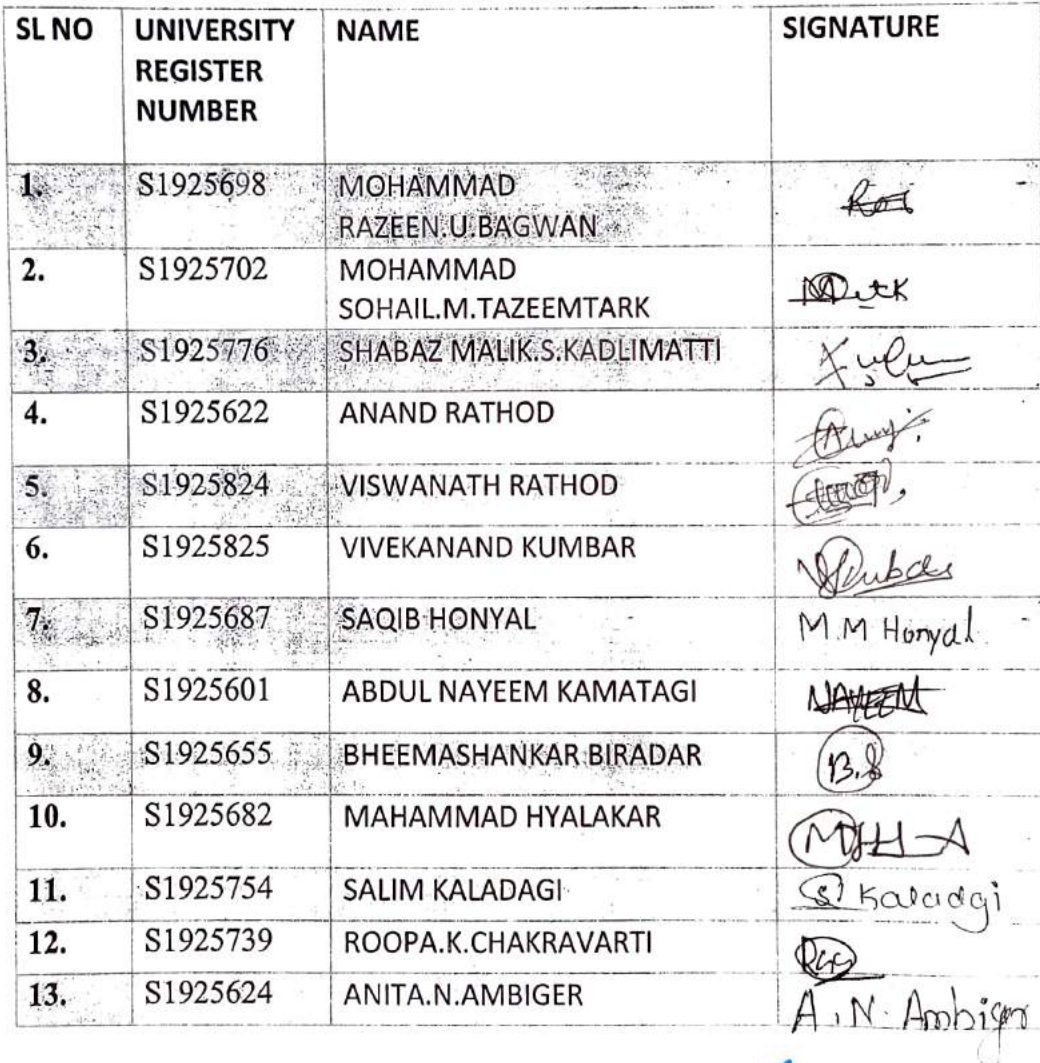 SL NO UNIVERSITY NAME SIGNATURE
REGISTER
NUMBER
1. S1925698 MOHAMMAD
RAZEEN.U.BAGWAN
2. S1925702 MOHAMMAD
SOHAIL.M.TAZEEMTARK
3. S1925776 SHABAZ MALIK.S.KADLIMATTI
4. S1925622 ANAND RATHOD
5. S1925824 VISWANATH RATHOD
6. S1925825 VIVEKANAND KUMBAR
7. S1925687 SAQIB HONYAL M.M Honyal
8. S1925601 ABDUL NAYEEM KAMATAGI NAYEEM
9. S1925655 BHEEMASHANKAR BIRADAR B.S
10. S1925682 MAHAMMAD HYALAKAR
11. S1925754 SALIM KALADAGI S Kaladgi
12. S1925739 ROOPA.K.CHAKRAVARTI
13. S1925624 ANITA.N.AMBIGER A.N. Ambiger